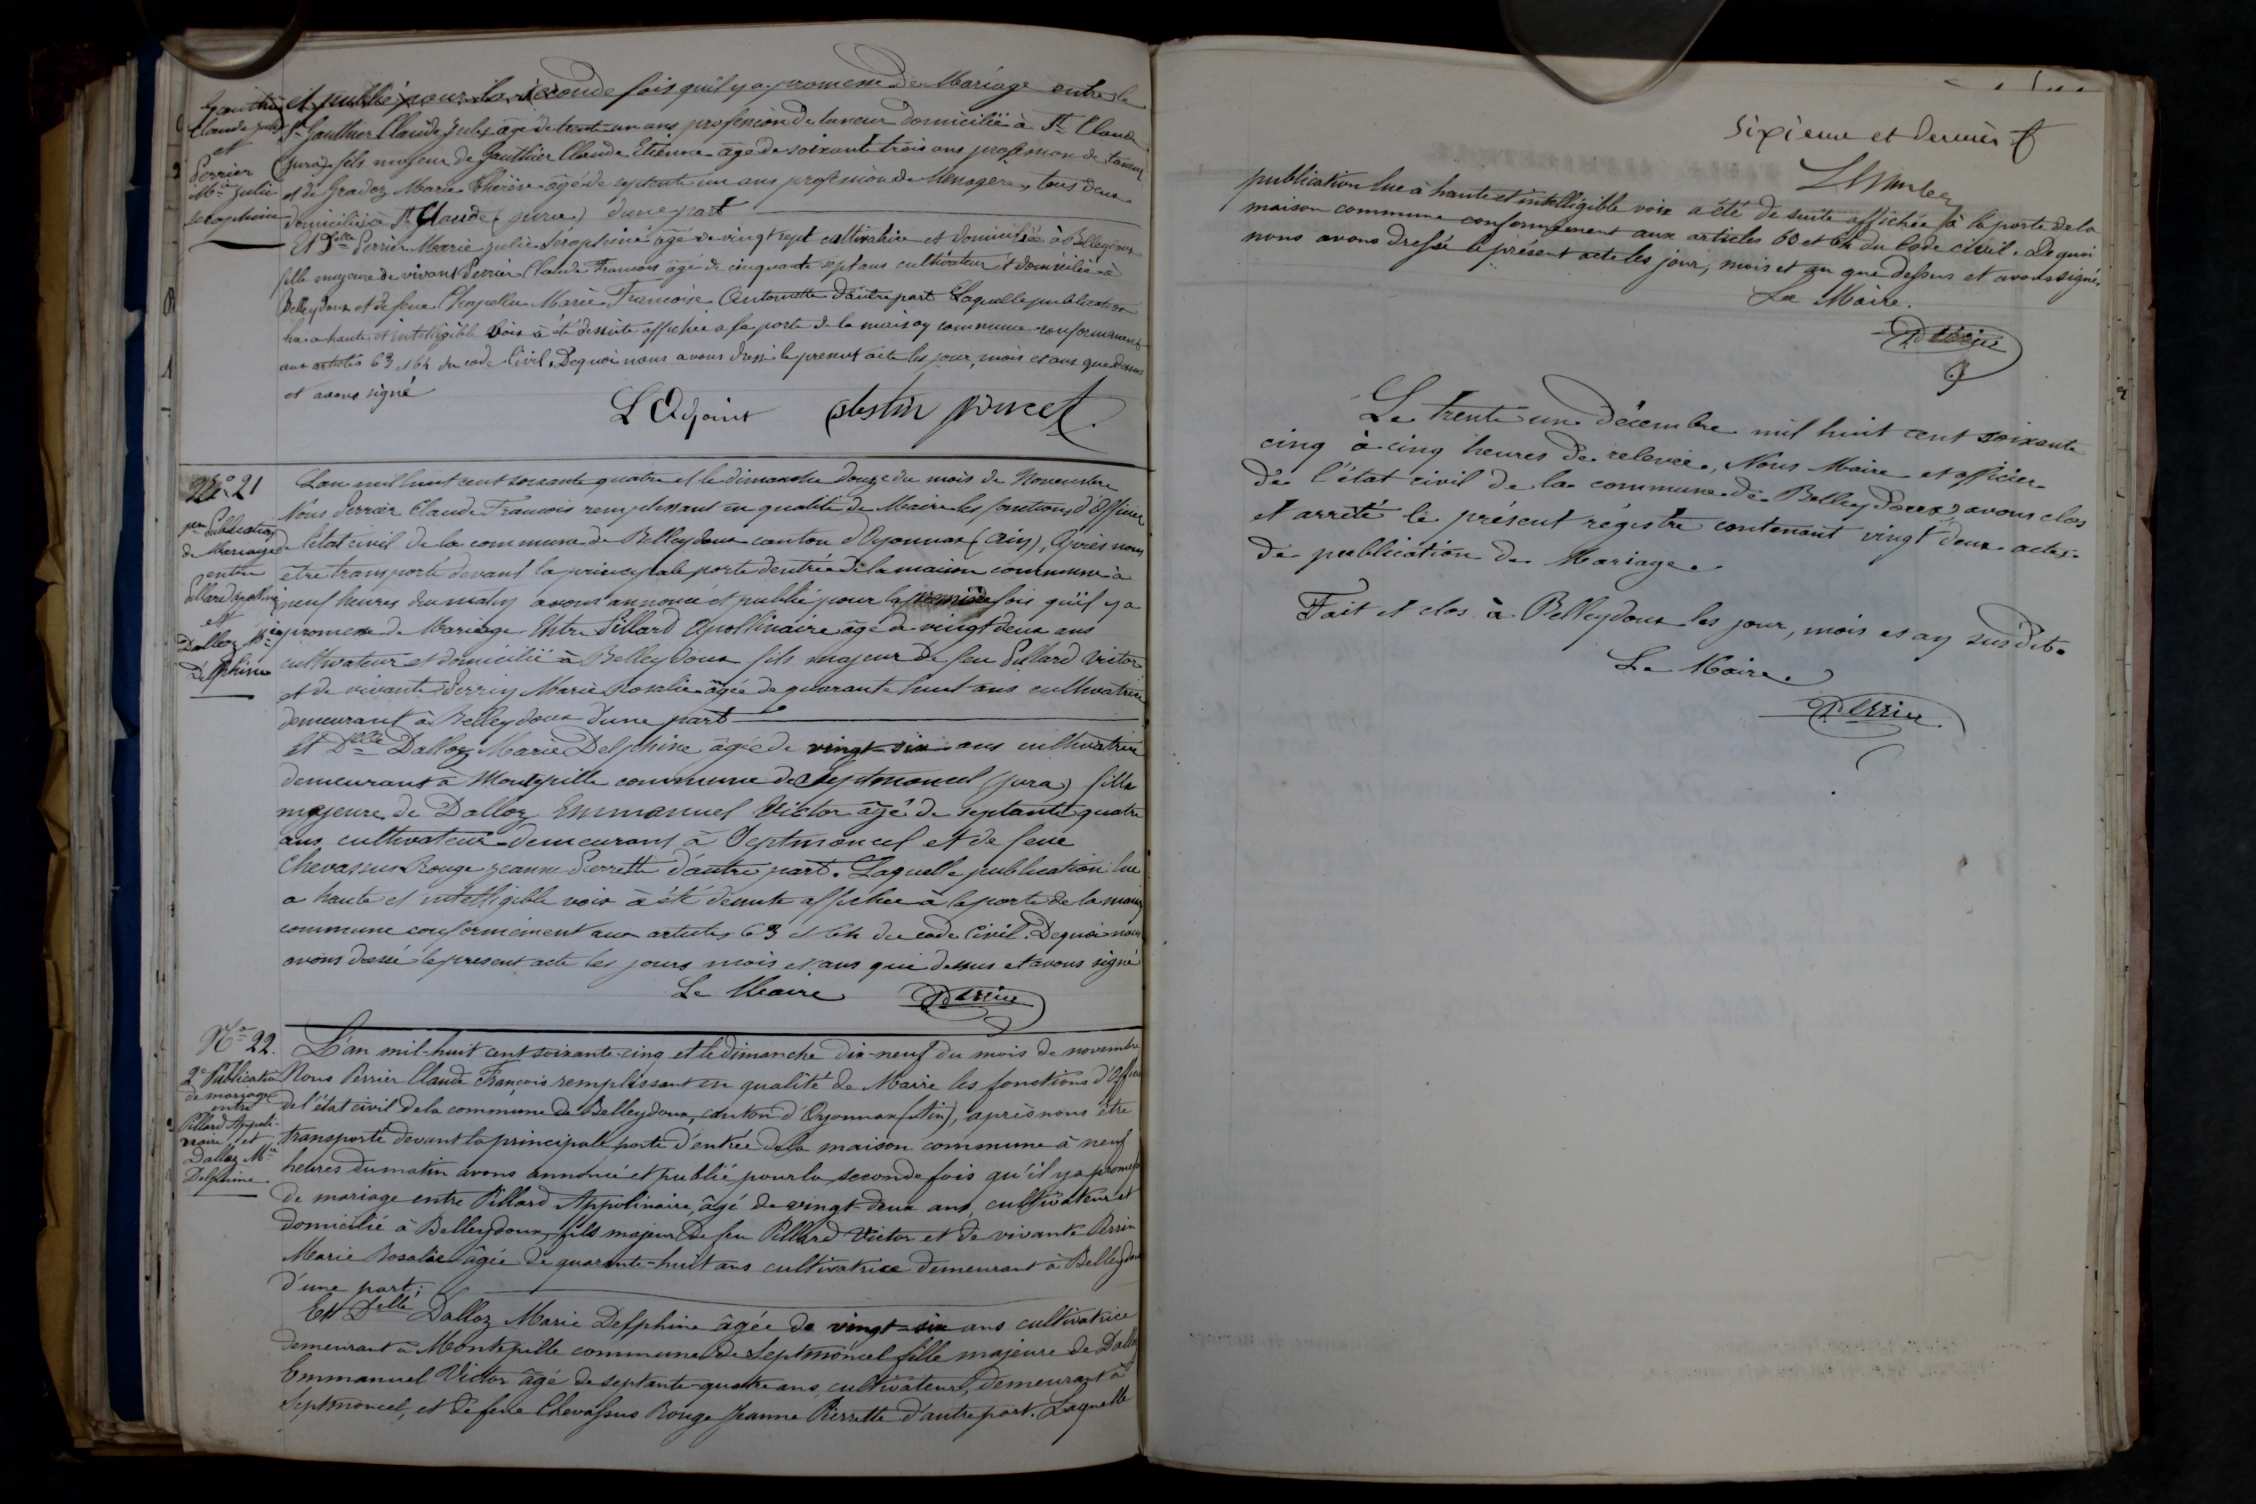 Gauthier
Claude Jules
et
Perrier
Mie Julie
Séraphine
et publié pour la seconde fois qu'il y a promesse de Mariage entre le
Sr Gauthier Claude Jules âgé de trente un ans profession de tanneur domicilié à St Claude
(Jura) fils majeur de Gauthier Claude Etienne âgé de soixante trois ans profession de tanneur
et de Gradoz Marie Thérèse âgé de septente un ans profession de Menagere, tous deux
domiciliés à St Claude (jura) d'une part
Et Delle Perrier Marie Julie Séraphine âgé de vingt sept cultivatrice et domiciliée à Belleydoux
fille majeure de vivant Perrier Claude Francois âgé de cinquante sept ans cultivateur et domicilié à
Belleydoux et de feue Marie Francoise Antoinette d'autre part Laquelle publication
lue a haute et intelligible voix à été desuite affichée a la porte de la maison commune conformement
aux articles 63 et 64 du code Civil. Dequoi nous avons dressé le present acte les jour, mois et ans que dessus
et avons signé
L'Adjoint
No 21
pre Publication
de Mariage
entre
Pillard Apolinaire
et
Dalloz Mie
Delphine
L'an mil huit cent soixante quatre et le dimanche douze du mois de Novembre
Nous Perrier Claude Francois remplissant en qualité de Maire les fonctions d'Officier
de l'état civil de la commune de Belleydoux canton d'Oyonnax (Ain), Après nous
être transporté devant la principale porte d'entrée de la maison commune à
neuf heures du matin avons annoncé et publié pour la première fois qu'il y a
promesse de Mariage Entre Pillard Apollinaire âgé de vingt deux ans
cultivateur et domicilié à Belleydoux fils majeur de feu Pillard Victor
et de vivante Perrin Marie Rosalie âgée de quarante huit ans cultivatrice
demeurant à Belleydoux d'une part
et Delle Dalloz Marie Delphine âgée de vingt-six ans cultivatrice
demeurant à Montepille commune de Septmoncel (jura) fille
majeure de Dalloz Emmanuel Victor âgé de septante quatre
ans cultivateur demeurant à Septmoncel et de feue
Chevassus Rouge Jeanne Pierrette d'autre part. Laquelle publication lue
a haute et intelligible voix à été desuite affichée à la porte de la maison
commune conformement aux articles 63 et 64 du code Civil. Dequoi nous
avons dressé le present acte les jours mois et ans que dessus et avons signé
Le Maire
No 22.
2e Publication
de mariage
entre
Pillard Appoli-
naire et
Dalloz Mie
Delphine.
L'an mil-huit cent soixante-cinq et le dimanche dix-neuf du mois de novembre
Nous Perrier Claude François remplissant en qualité de Maire les fonctions d'Officier
de l'état civil de la commune de Belleydoux, canton d'Oyonnax (Ain), après nous être
transporté devant la principale porte d'entrée de la maison commune à neuf
heures du matin avons annoncé et publié pour la seconde fois qu'il y a promesse
de mariage entre Pillard Appolinaire, âgé de vingt-deux ans, cultivateur et
domicilié à Belleydoux, fils majeur de feu Pillard Victor et de vivante Perrin
Marie Rosalie âgée de quarante-huit ans cultivatrice demeurant à Belleydoux
d'une part;
Et Delle Dalloz Marie Delphine âgée de vingt-six ans cultivatrice
demeurant à Montepille commune de Septmoncel fille majeure de Dalloz
Emmanuel Victor âgé de septante-quatre ans, cultivateur, demeurant à
Septmoncel, et de feue Chevassus Rouge Jeanne Pierrette d'autre part. Laquelle
Sixieme et dernier f
publication lue à haute et intelligible voix a été de suite affichée à la porte de la
maison commune conformement aux articles 63 et 64 du Code civil. De quoi
nous avons dressé le présent acte les jour, mois et an que dessus et avons signé.
Le Maire.
Le trente un décembre mil huit cent soixante
cinq à cinq heures de relevée, Nous Maire et officier
de l'état civil de la commune de Belleydoux, avons clos
et arrêté le présent régistre contenant vingt deux actes
de publication de Mariage.
Fait et clos à Belleydoux les jour, mois et an susdits.
Le Maire